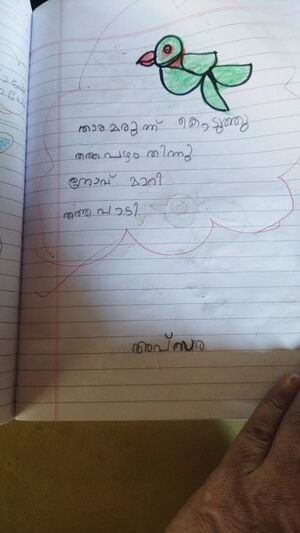 താര മരുന്ന് കൊടുത്തു
തത്ത പഴം തിന്നു
നോവ് മാറി
തത്ത പാടി
അപ്സര